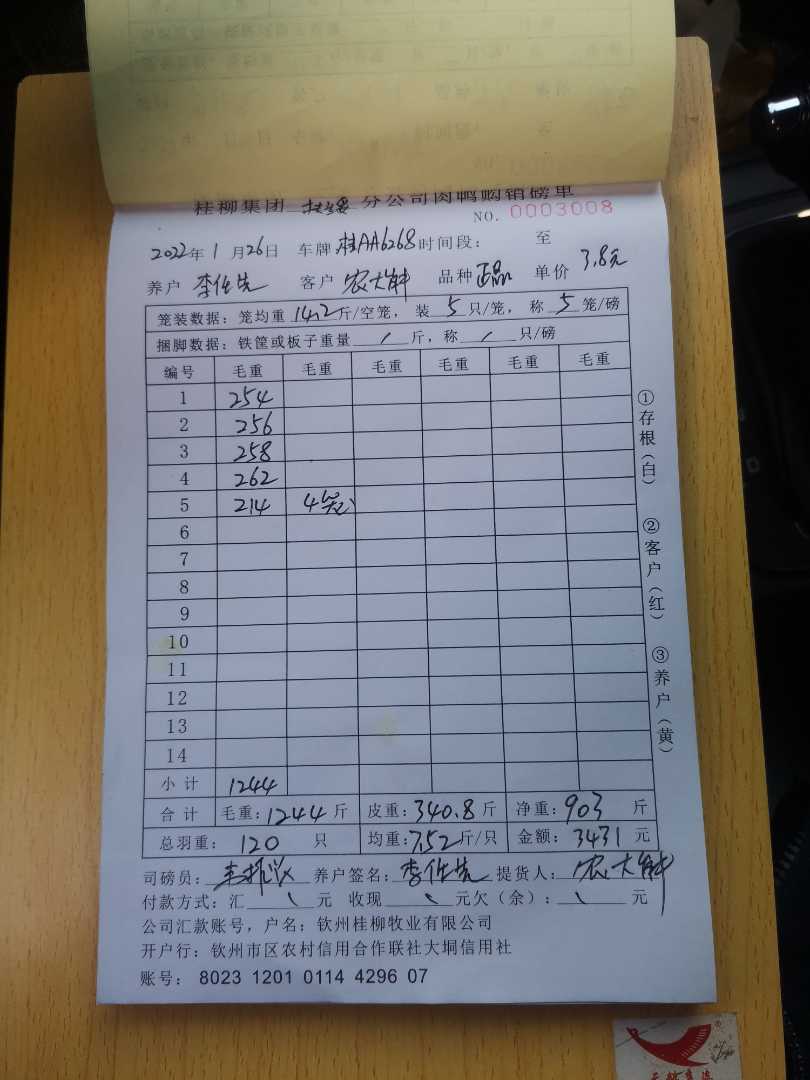 桂柳集团 分公司肉鸭购销磅单
NO. 0003008
2022年 1 月 26日 车牌 桂AA6268 时间段： 至
养户 李仕先 客户 农大 品种 正品 单价 3.8元
笼装数据：笼均重 14.2 斤/空笼， 装 5 只/笼， 称 5 笼/磅
捆脚数据：铁筐或板子重量 / 斤，称 / 只/磅
编号 毛重 毛重 毛重 毛重 毛重 毛重
1 254
2 256
3 258
4 262
5 214 4笼
6
7
8
9
10
11
12
13
14
小 计 1244
合 计 毛重：1244 斤 皮重：340.8 斤 净重：903 斤
总羽重： 120 只 均重：7.52 斤/只 金额：3431 元
司磅员： 养户签名：李仕先 提货人：农大
付款方式：汇 元 收现 元欠（余）： 元
公司汇款账号，户名：钦州桂柳牧业有限公司
开户行：钦州市区农村信用合作联社大垌信用社
账号： 8023 1201 0114 4296 07
①存根（白） ②客户（红） ③养户（黄）